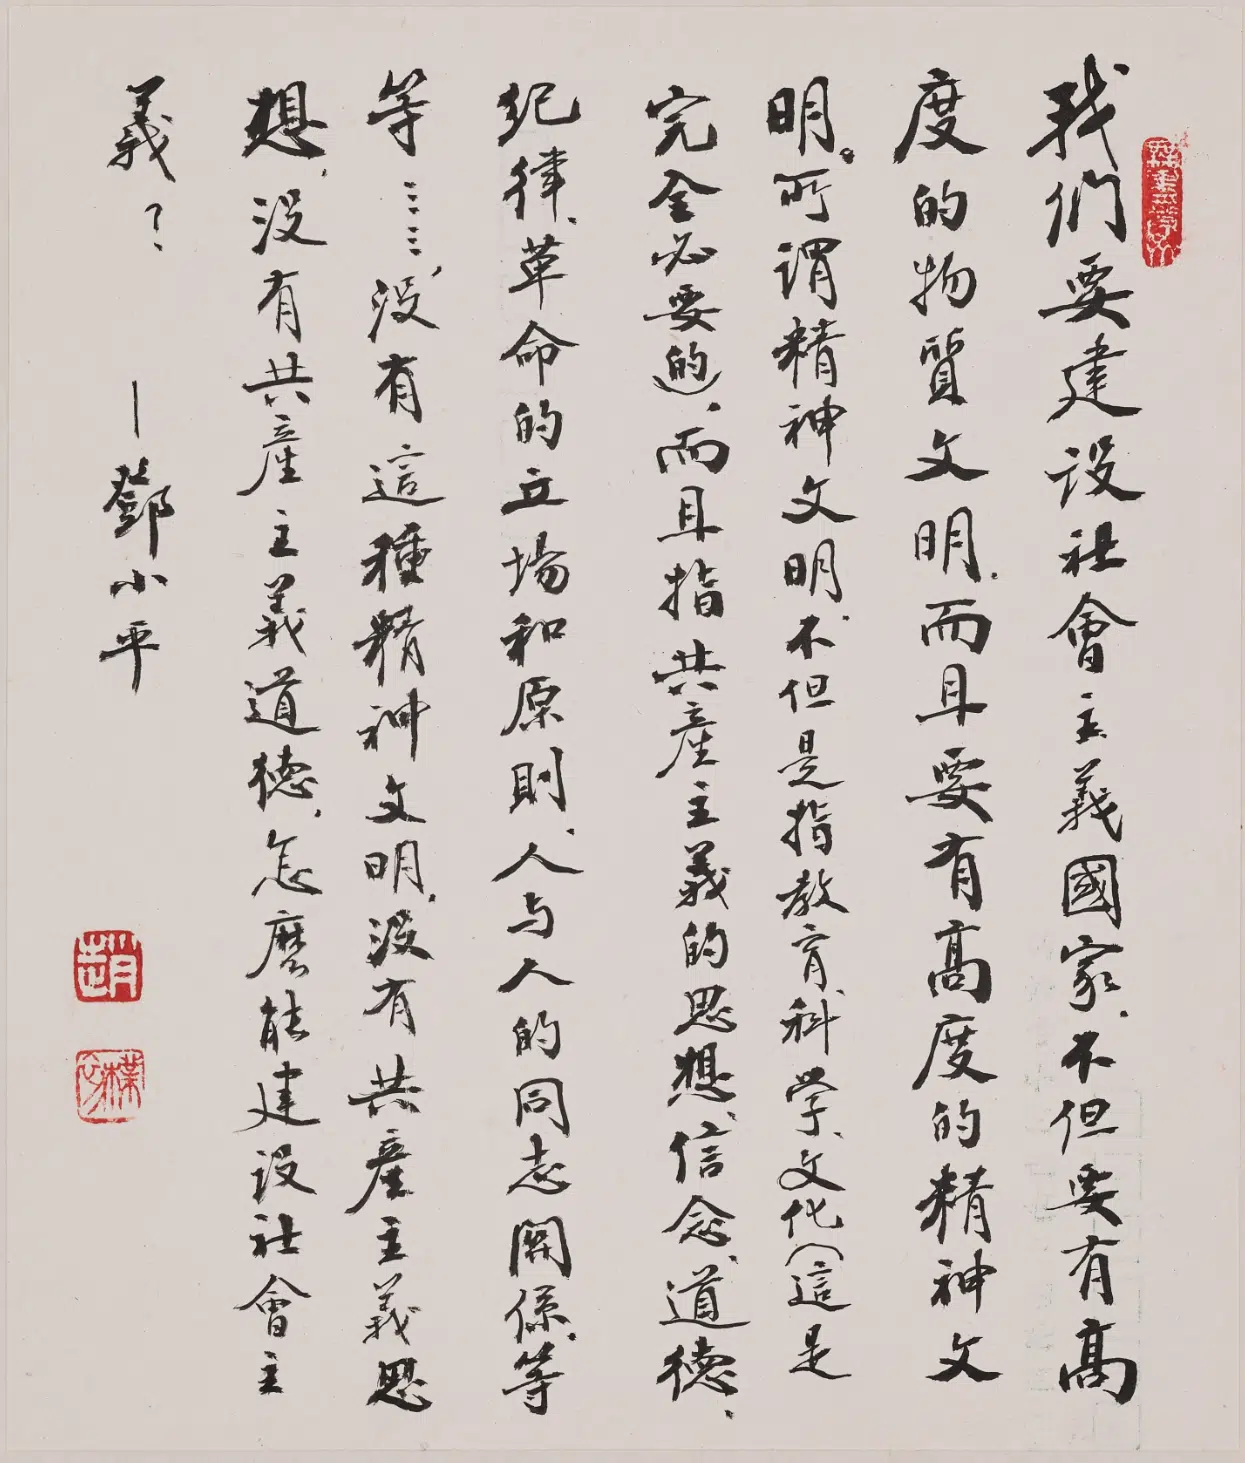 我们要建设社會主義國家.不但要有高
度的物質文明.而且要有高度的精神文
明。所谓精神文明.不但是指教育、科学、文化(這是
完全必要的),而且指共産主義的思想、信念、道德、
纪律、革命的立場和原則、人与人的同志關係、等
等……,没有這種精神文明.没有共産主義思
想,没有共産主義道德,怎麽能建设社會主
義?
—鄧小平
趙
樸初